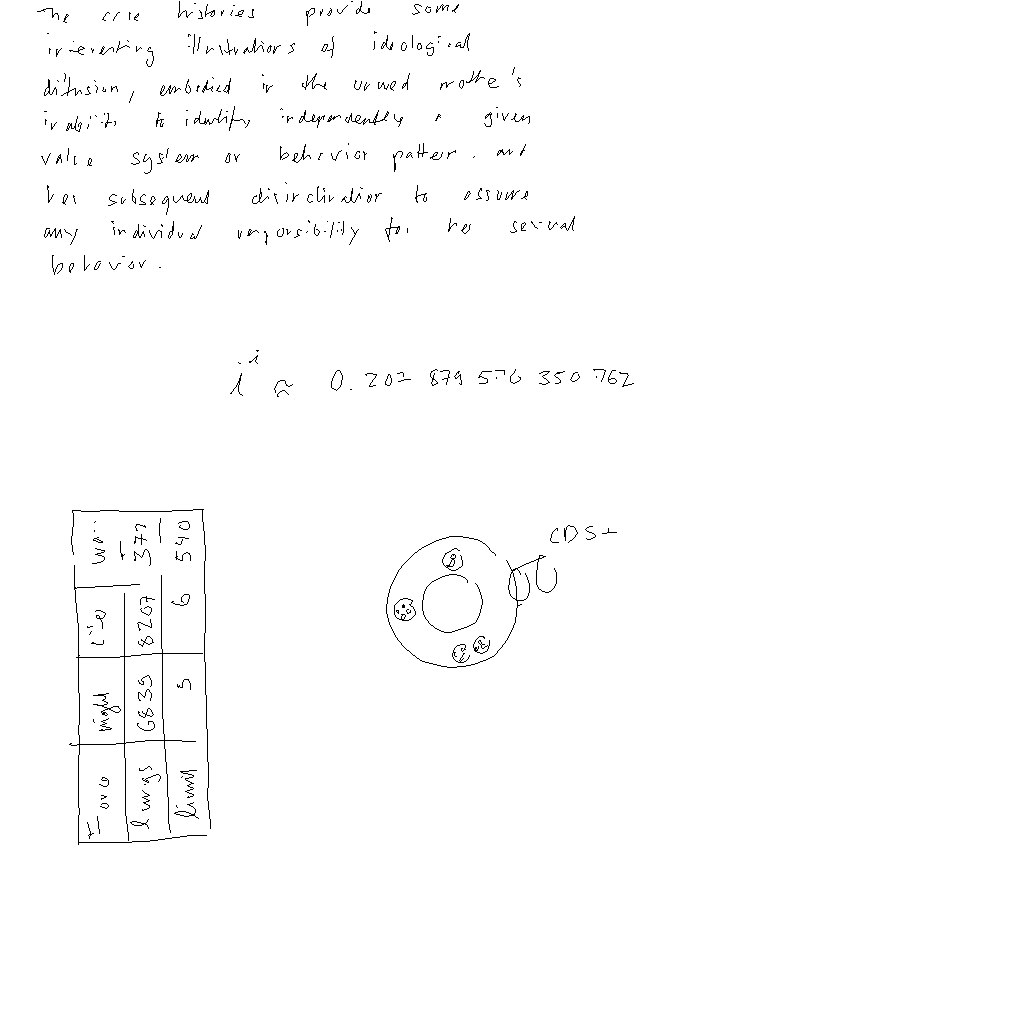 The case histories provide some
interesting illustrations of ideological
diffusion, embodied in the unwed mother's
inability to identify independently a given
value system or behavior pattern. and
her subsequent disinclination to assume
any individual responsibility for her sexual
behavior.
i^i ≈ 0. 207 879 576 350 762
CDS+
Force might
lungs 6839 8207 377
limit 5 6 540